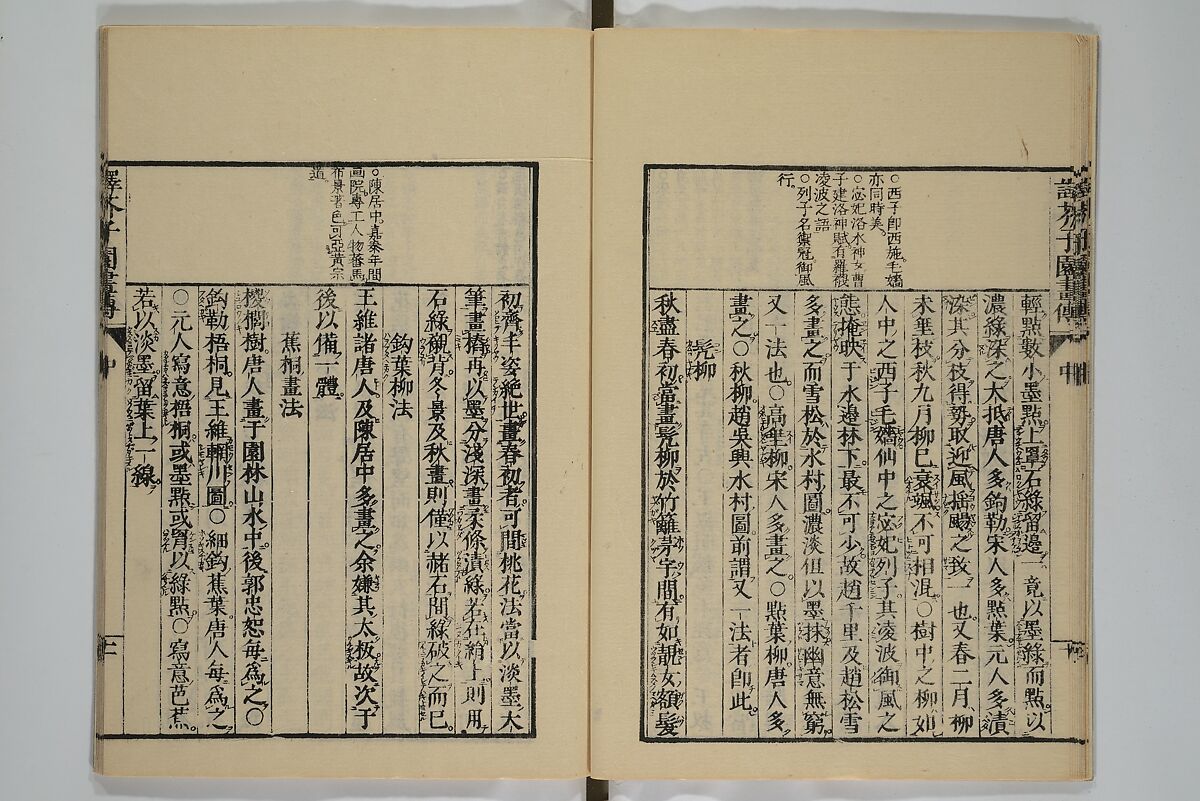 譯芥子園畫傳
中
○西子卽西施毛嬙
亦同時美
○宓妃洛水神女曹
子建洛神賦有羅襪
凌波之語
○列子名禦寇御風
行
輕點數小墨點上罩石綠留邊一竟以墨綠而點以
濃綠深之大抵唐人多鉤勒宋人多點葉元人多漬
染其分枝得勢取迎風搖颺之致一也又春二月柳
未埀枝秋九月柳已衰颯不可相混○樹中之柳如
人中之西子毛嬙仙中之宓妃列子其凌波御風之
態掩映于水邊林下最不可少故趙千里及趙松雪
多畫之而雪松於水村圖濃淡但以墨抹幽意無窮
又一法也○高埀柳宋人多畫之○點葉柳唐人多
畫之○秋柳趙吳興水村圖前謂又一法者卽此
髠柳
秋盡春初當畫髠柳於竹籬茅宇間有如靚女額髮
○陳居中嘉泰年間
畫院專工人物蕃馬
布景著色可亞黃宗
道
初齊丰姿絕世畫春初者可間桃花法當以淡墨大
筆畫樁再以墨分淺深畫柔條漬綠若在絹上則用
石綠襯背冬景及秋畫則僅以赭石間綠破之而已
鈎葉柳法
王維諸唐人及陳居中多畫之余嫌其太板故次于
後以備一體
蕉桐畫法
椶櫚樹唐人畫于園林山水中後郭忠恕每爲之○
鈎勒梧桐見王維輞川圖○細鈎蕉葉唐人每爲之
○元人寫意梧桐或墨點或胃以綠點○寫意芭蕉
若以淡墨留葉上一線
譯芥子園畫傳
中
二